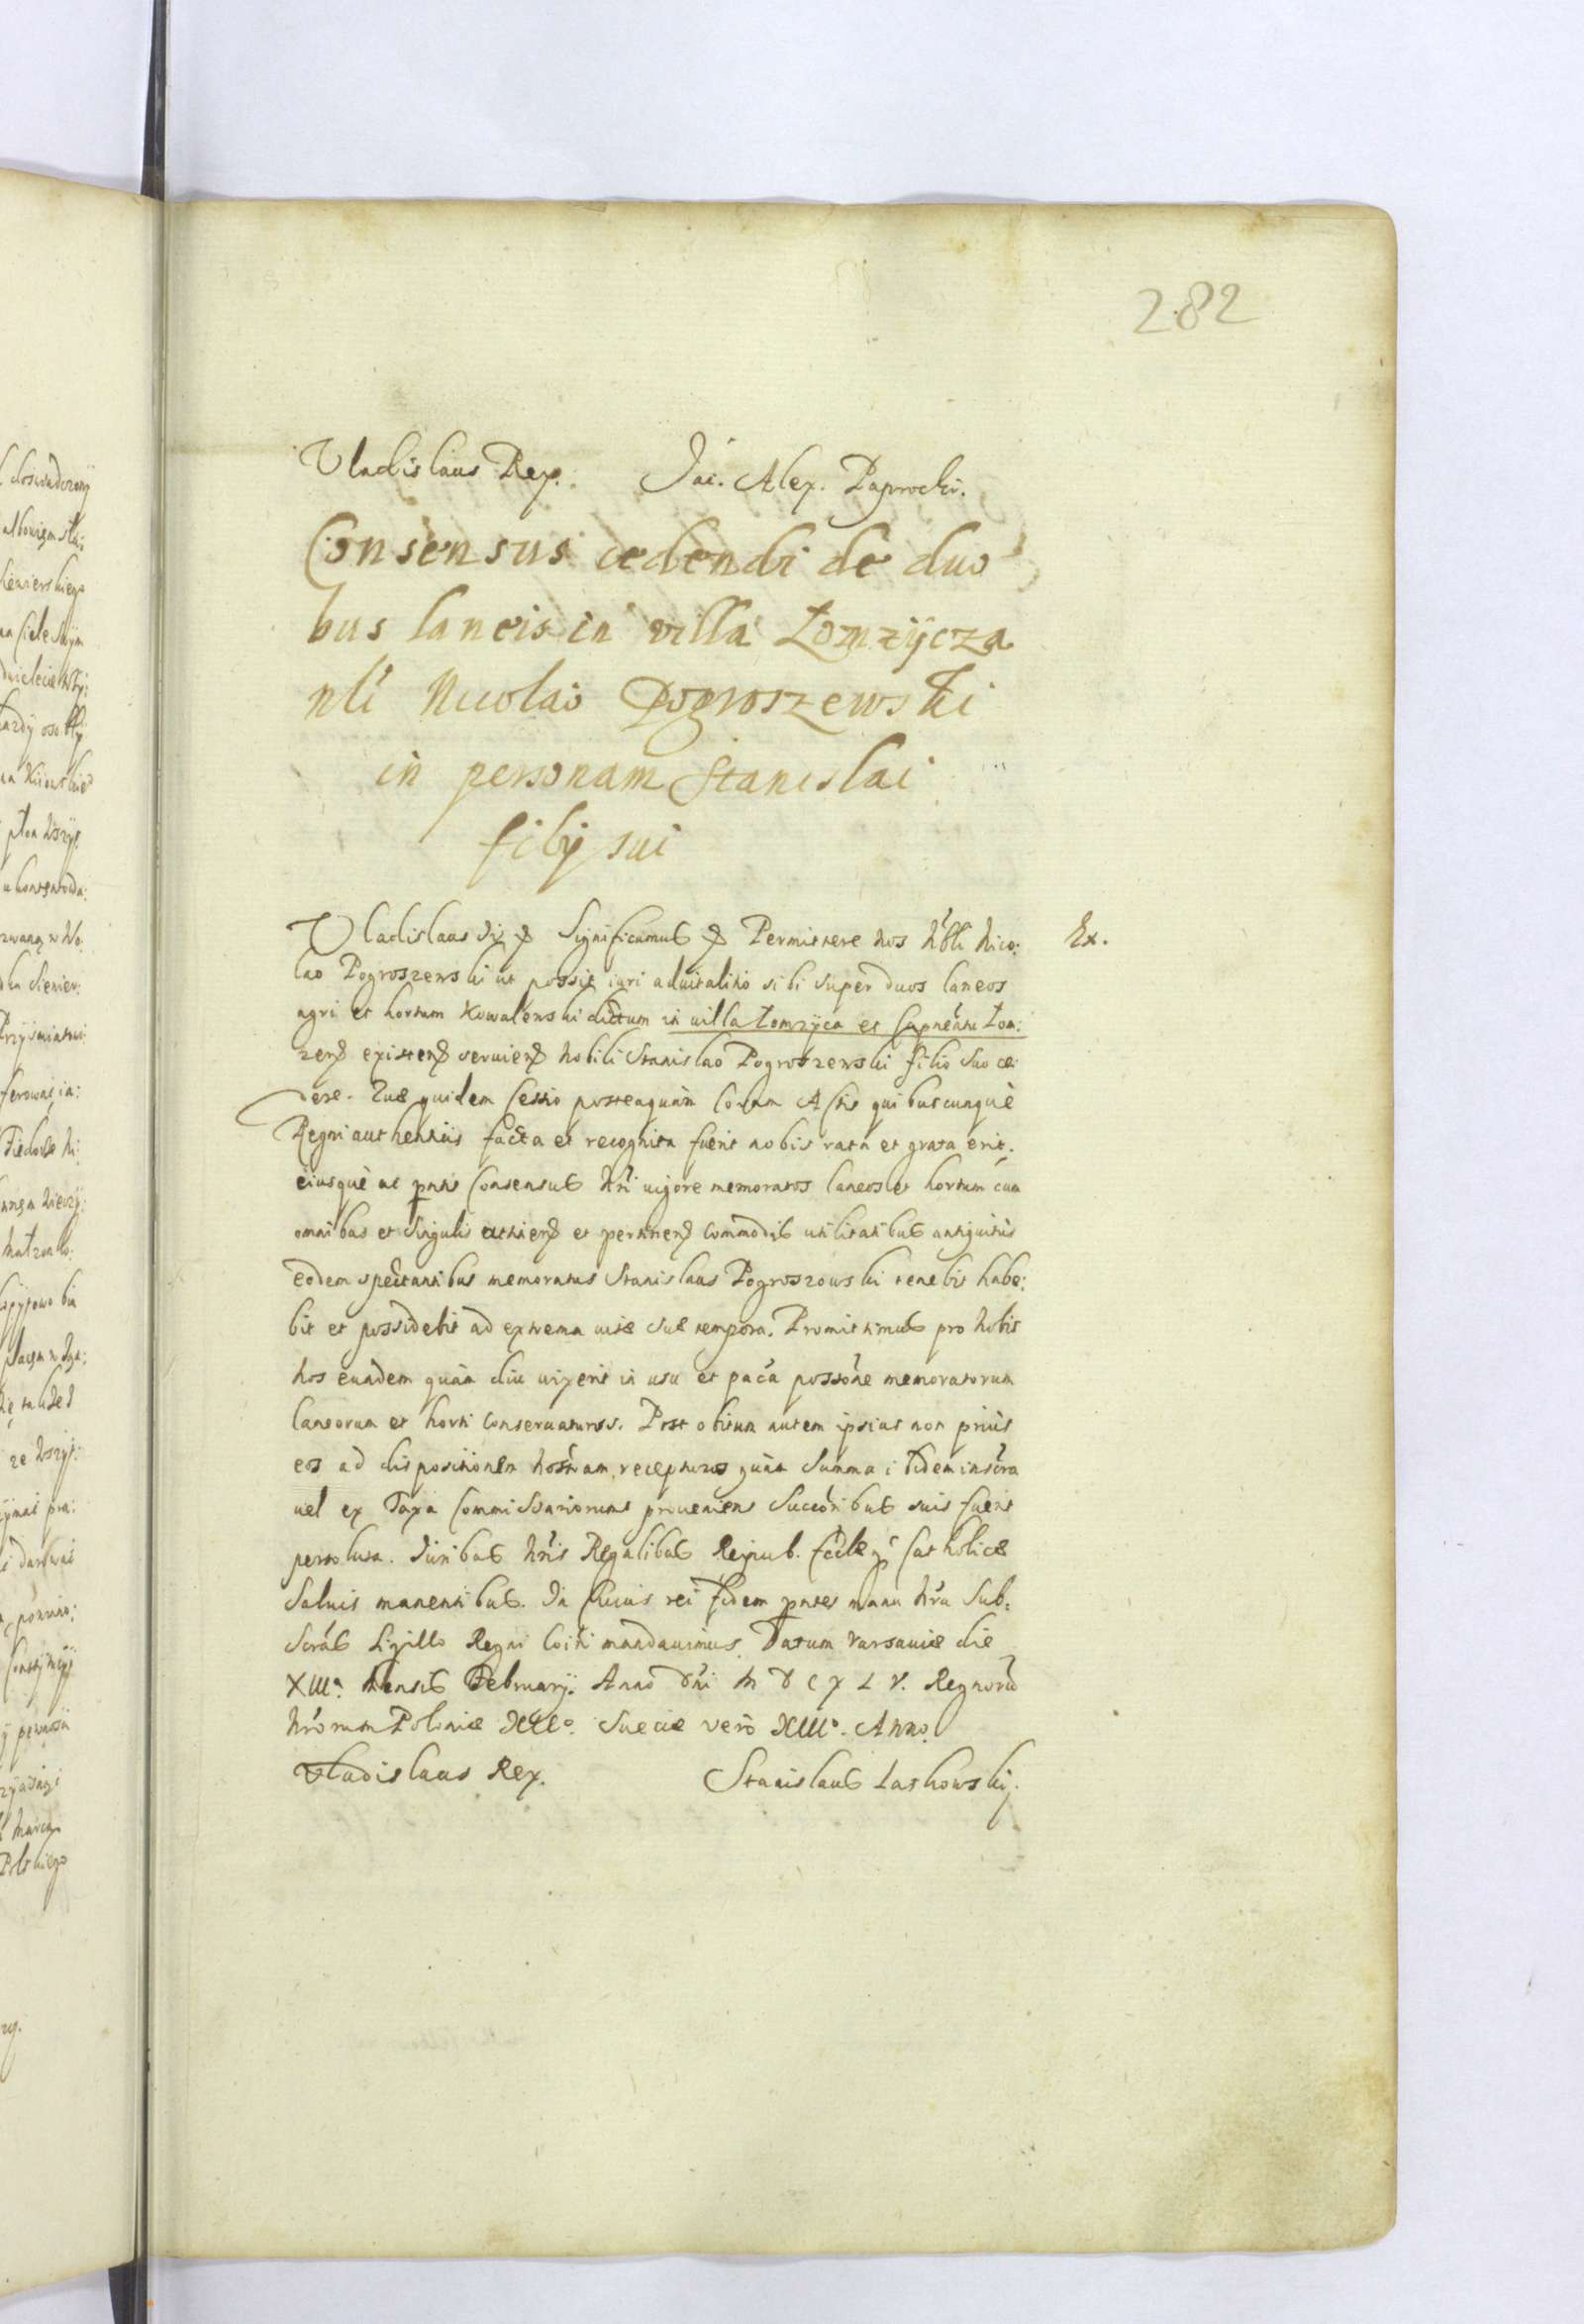 282
Vladislaus Rex. Jac. Alex. Paprocki.
Consensus cedendi de duo
bus laneis in villa Łomzÿcza
nli Nicolao Pogroszewski
in personam Stanislai
filÿ sui
Vladislaus Significamus Permittere nos Nbli Nico: Ex.
lao Pogroszewski ut possit iuri advitalitio sibi super duos laneos
agri et hortum Kowalewski dictum in villa Lomzÿca et Capneatu Lom:
zen existen servien Nobili Stanislao Pogroszewski filio suo ce:
dere. Quæ quidem Cessio posteaquàm Coram Actis quibuscunquè
Regni authenticis facta et recognita fuerit nobis rata et grata erit.
eiusquè ac pntis Consensus Nri vigore memoratos laneos et hortum cum
omnibus et singulis attinen et pertinen commodis utilitatibus antiquitùs
eodem spectantibus memoratus Stanislaus Pogroszowski tenebit habe:
bit et possidebit ad extrema vitæ suæ tempora. Promittimus pro Nobis
Nos eundem quàm diu vixerit in usu et paca possone memoratorum
laneorum et horti Conservaturos. Post obitum autem ipsius non priùs
eos ad dispositionem Nostram recepturos quàm Summa ibidem inscra
vel ex Taxa Commissariorum proveniens Succoribus suis fuerit
persoluta. Iuribus Nris Regalibus Reipub. Eccle Catholicæ
Salvis manentibus. In Cuius rei fidem pntes manu Nra Sub:
scras Sigillo Regni Coiri mandavimus. Datum Varsaviæ die
XIIIa. Mensis Februarÿ. Anno Dni M D C X L V. Regnoru
Nrorum Poloniæ XIIo. Sueciæ verò XIIIo. Anno.
Vladislaus Rex. Stanislaus Laskowskÿ.